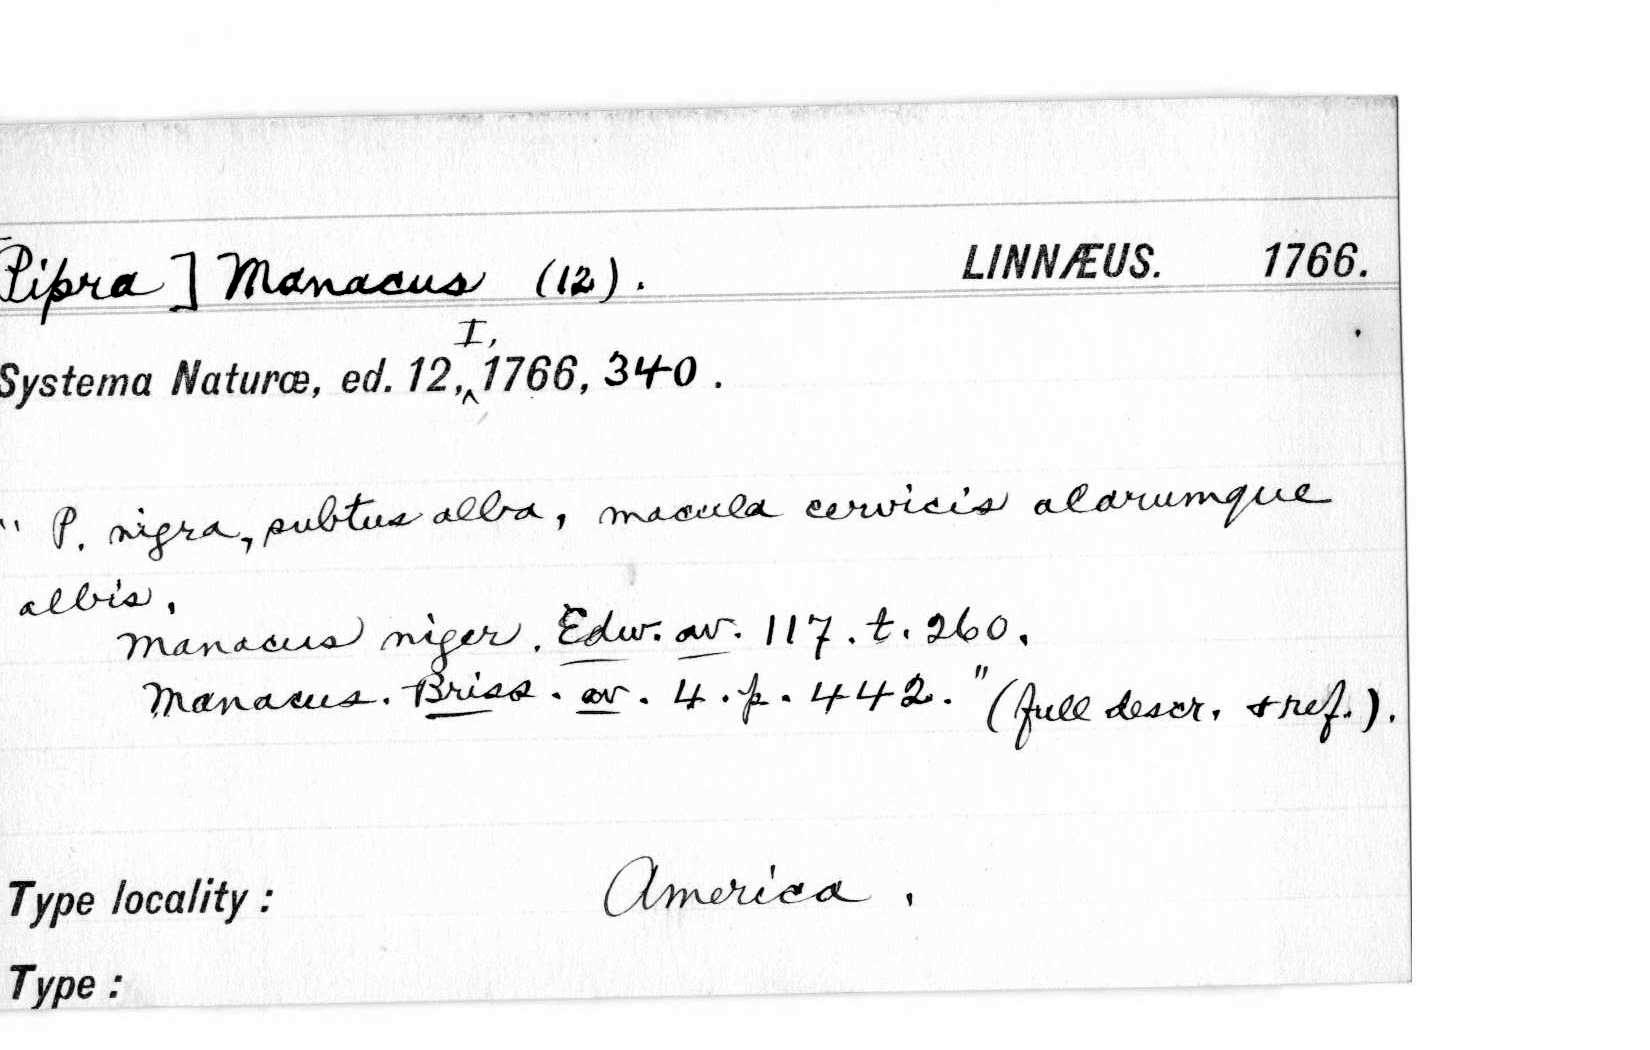 [Pipra] Manacus (12). LINNÆUS. 1766.
Systema Naturæ, ed. 12, I, 1766, 340.
" P. nigra, subtus alba, macula cervicis alarumque
albis.
Manacus niger. Edw. av. 117. t. 260.
Manacus. Briss. av. 4. p. 442." (full descr. & ref.).
Type locality: America.
Type: